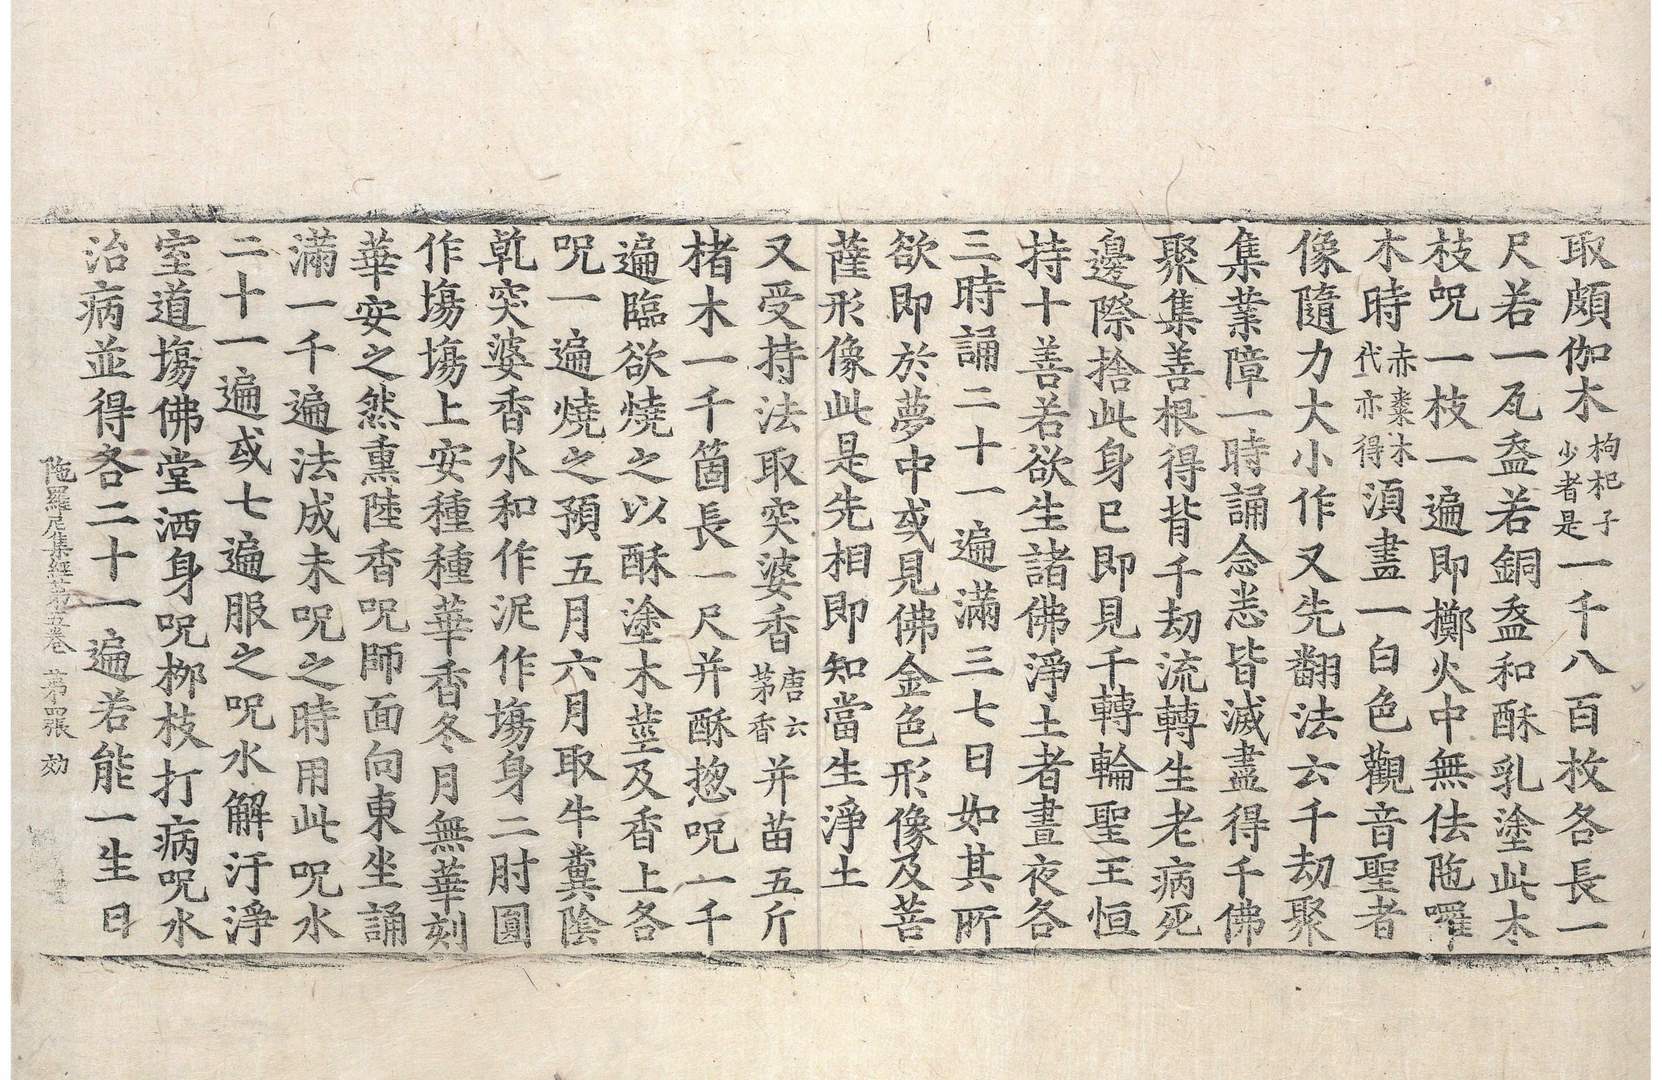 取頗伽木枸杞子少者是一千八百枚各長一
尺若一瓦盋若銅盋和酥乳塗此木
枝呪一枝一遍即擲火中無佉陁囉
木時赤棗木代亦得湏畫一白色觀音聖者
像隨力大小作又先翻法云千劫聚
集業障一時誦念悉皆滅盡得千佛
聚集善根得背千劫流轉生老病死
邊際捨此身已即見千轉輪聖王恒
持十善若欲生諸佛淨土者晝夜各
三時誦二十一遍滿三七日如其所
欲即於夢中或見佛金色形像及菩
薩形像此是先相即知當生淨土
又受持法取突婆香唐云茅香并苗五斤
楮木一千箇長一尺并酥揔呪一千
遍臨欲燒之以酥塗木莖及香上各
呪一遍燒之預五月六月取牛糞陰
乹突婆香水和作泥作塲身二肘圓
作塲塲上安種種華香冬月無華刻
華安之然熏陸香呪師面向東坐誦
滿一千遍法成未呪之時用此呪水
二十一遍或七遍服之呪水解汙淨
室道塲佛堂洒身呪栁枝打病呪水
治病並得各二十一遍若能一生日
陁羅尼集經第五卷 第四張 効